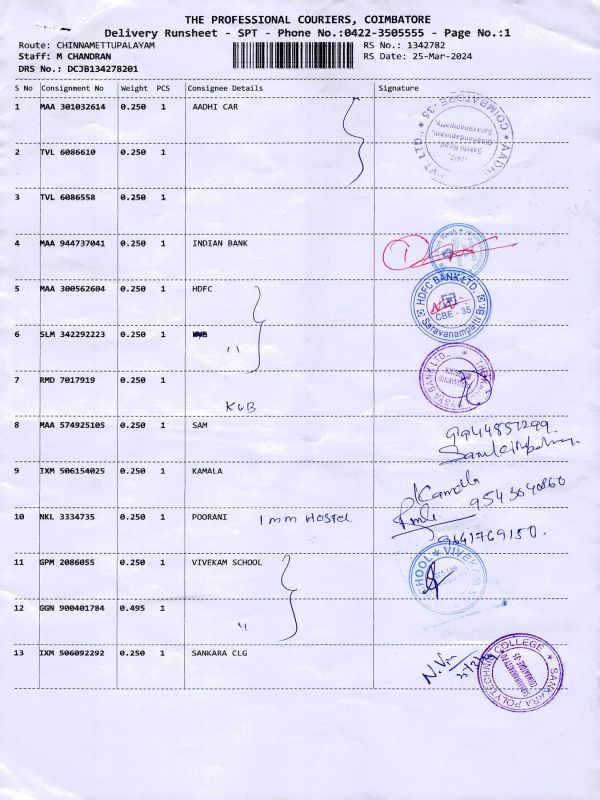 THE PROFESSIONAL COURIERS, COIMBATORE
Delivery Runsheet - SPT - Phone No.:0422-3505555 - Page No.:1
Route: CHINNAMETTUPALAYAM RS No.: 1342782
Staff: M CHANDRAN RS Date: 25-Mar-2024
DRS No.: DCJB134278201
S No Consignment No Weight PCS Consignee Details Signature
1 MAA 301032614 0.250 1 AADHI CAR
2 TVL 6086610 0.250 1
3 TVL 6086558 0.250 1
4 MAA 944737041 0.250 1 INDIAN BANK
5 MAA 300562604 0.250 1 HDFC
HDFC BANK LTD.
CBE - 35
Saravanampatti Br.
6 SLM 342292223 0.250 1 "
7 RMD 7017919 0.250 1 KVB
8 MAA 574925105 0.250 1 SAM
9944857299
9 IXM 506154025 0.250 1 KAMALA Kamala
9543640860
10 NKL 3334735 0.250 1 POORANI 1mm Hostel
9641769150.
11 GPM 2086055 0.250 1 VIVEKAM SCHOOL
12 GGN 900401784 0.495 1 "
13 IXM 506092292 0.250 1 SANKARA CLG
SANKARA POLYTECHNIC COLLEGE
SARAVANAMPATTI
COIMBATORE-35